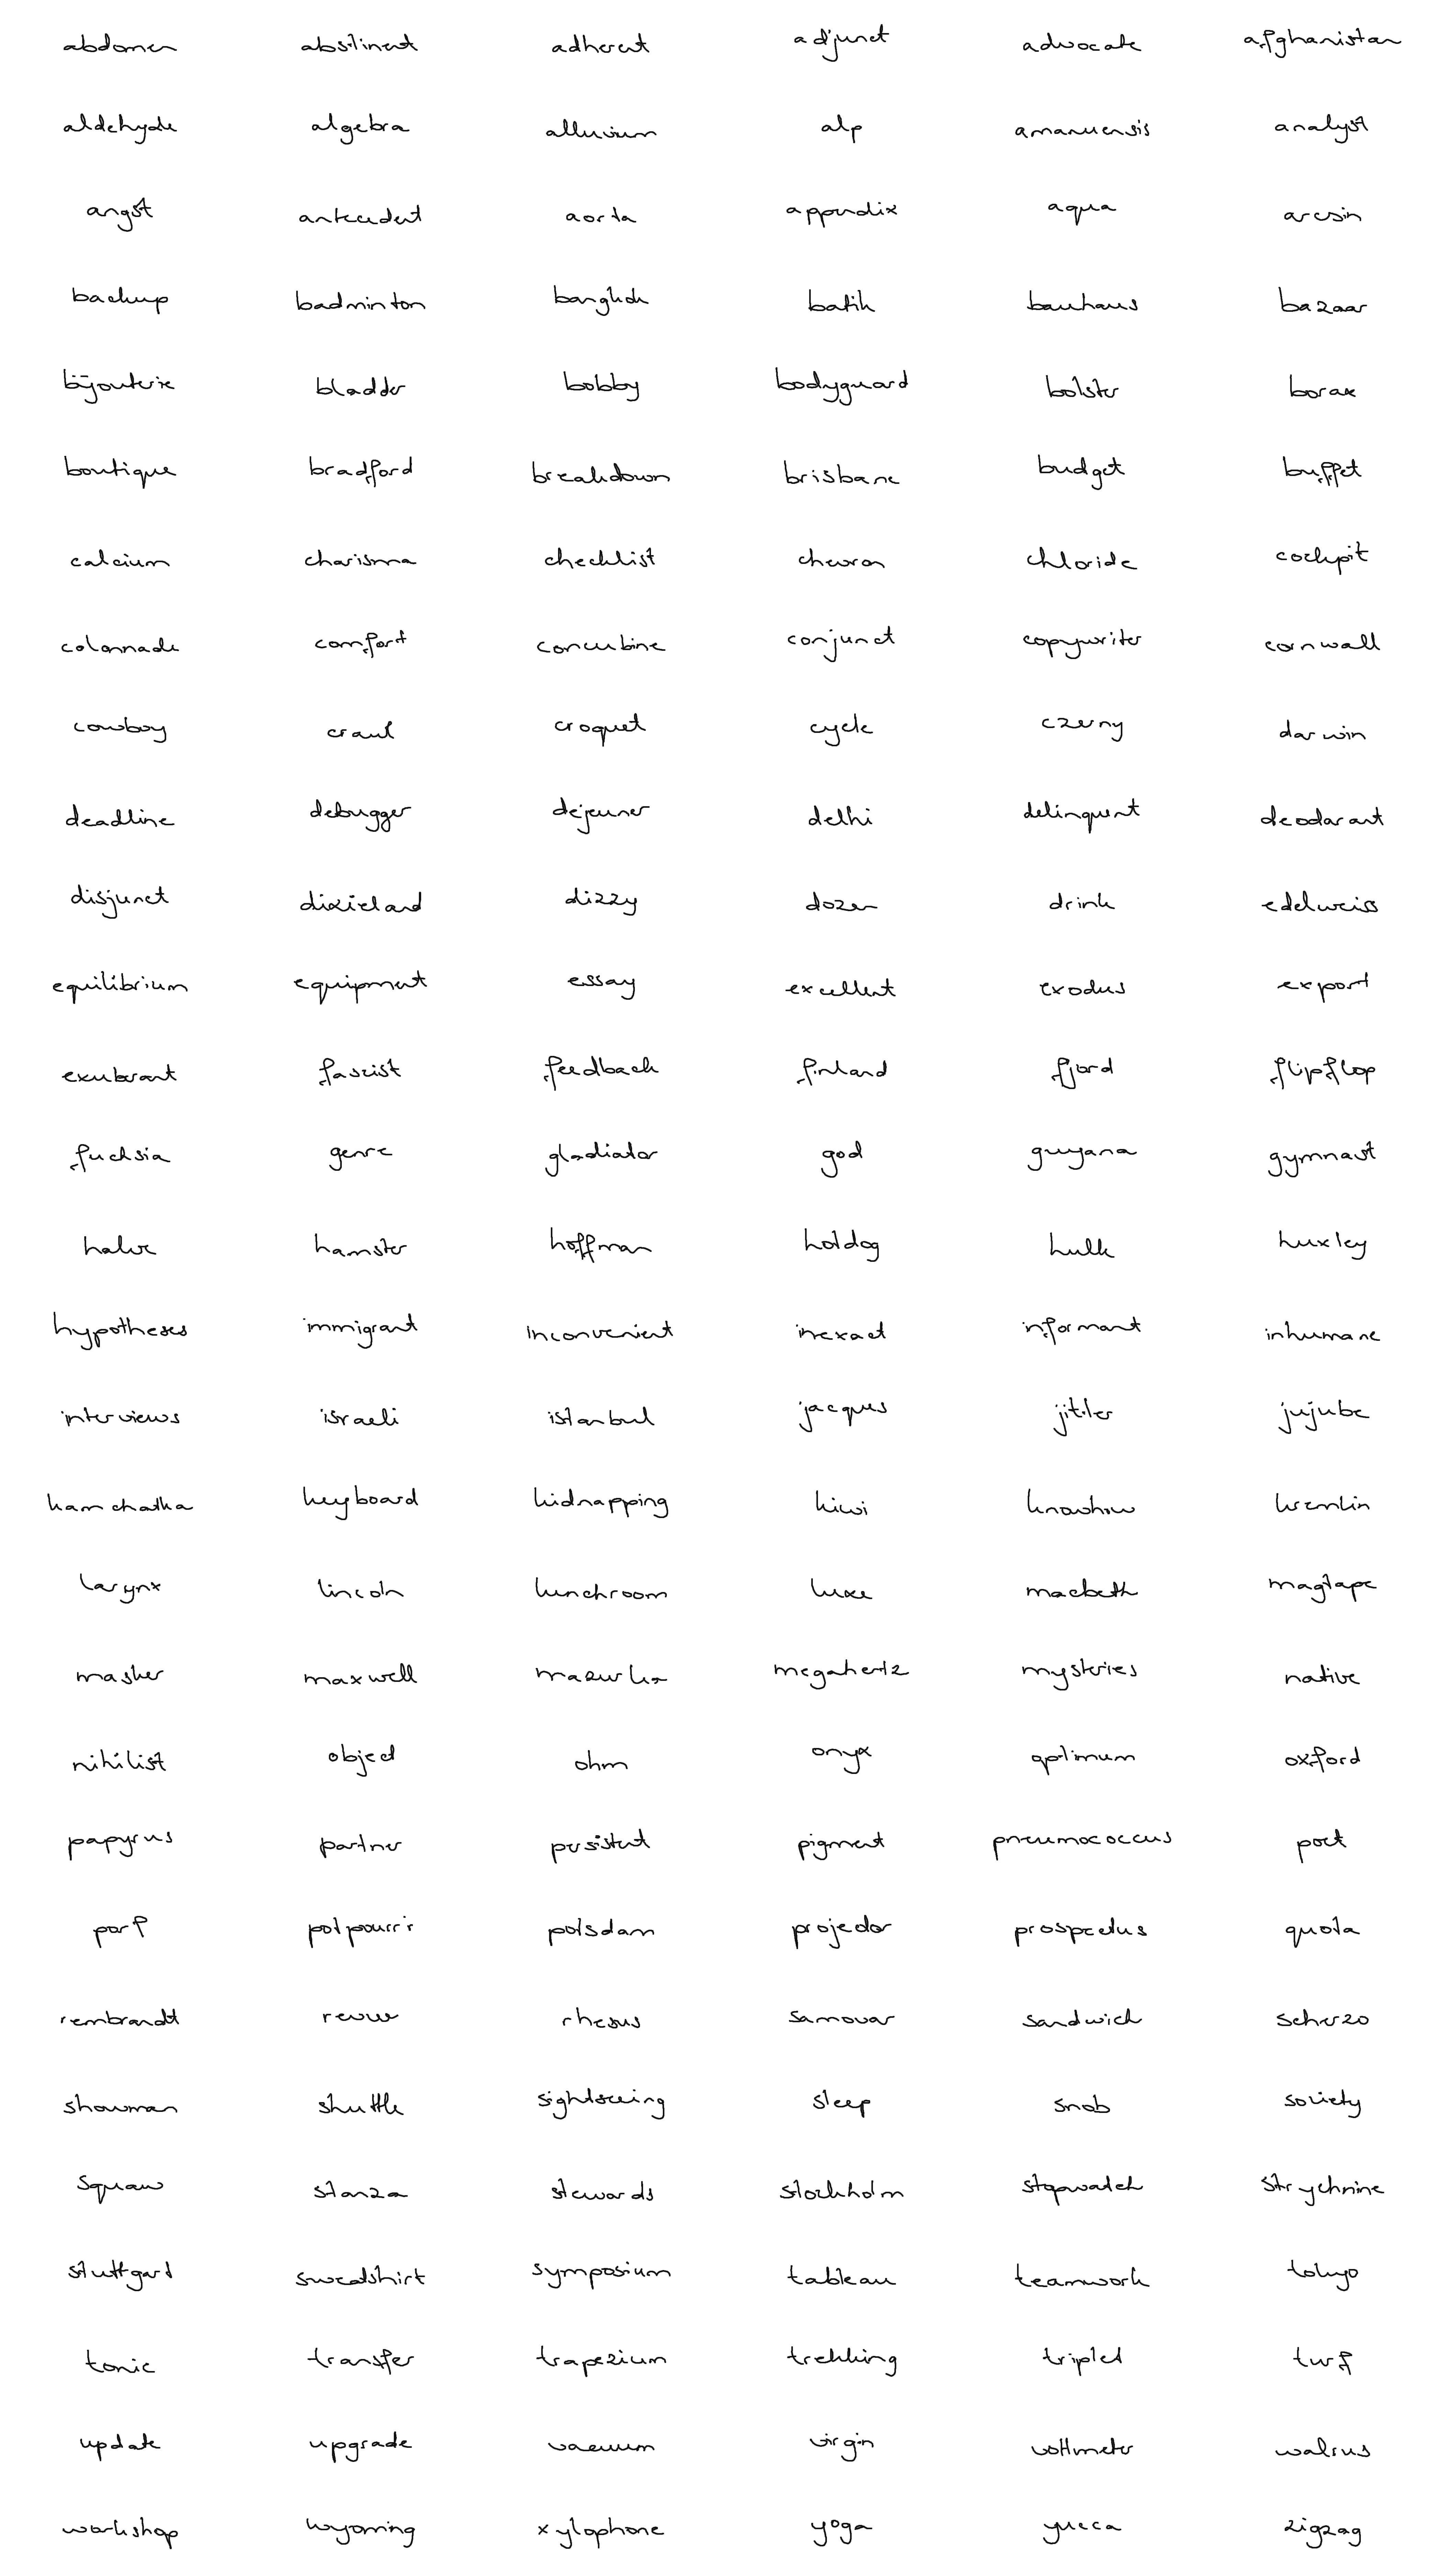 abdomen abstinent adherent adjunct advocate afghanistan
aldehyde algebra alluvium alp amanuensis analyst
angst antecedent aorta appendix aqua arcsin
backup badminton bangkok batik bauhaus bazaar
bijouterie bladder bobby bodyguard bolster borax
boutique bradford breakdown brisbane budget buffet
calcium charisma checklist chevron chloride cockpit
colonnade comfort concubine conjunct copywriter cornwall
cowboy crawl croquet cycle czerny darwin
deadline debugger dejeuner delhi delinquent deodorant
disjunct dixieland dizzy dozen drink edelweiss
equilibrium equipment essay excellent exodus export
exuberant fascist feedback finland fjord flipflop
fuchsia genre gladiator god guyana gymnast
halve hamster hoffman hotdog hulk huxley
hypotheses immigrant inconvenient inexact informant inhumane
interviews israeli istanbul jacques jitter jujube
kamchatka keyboard kidnapping kiwi knowhow kremlin
larynx lincoln lunchroom luxe macbeth magtape
masker maxwell mazurka megahertz mysteries native
nihilist object ohm onyx optimum oxford
papyrus partner persistent pigment pneumococcus poet
porf potpourri potsdam projector prospectus quota
rembrandt revue rhesus samovar sandwich scherzo
showman shuttle sightseeing sleep snob society
squaw stanza stewards stockholm stopwatch strychnine
stuttgart sweatshirt symposium tableau teamwork tokyo
tonic transfer trapezium trekking triplet turf
update upgrade vacuum virgin voltmeter walrus
workshop wyoming xylophone yoga yucca zigzag